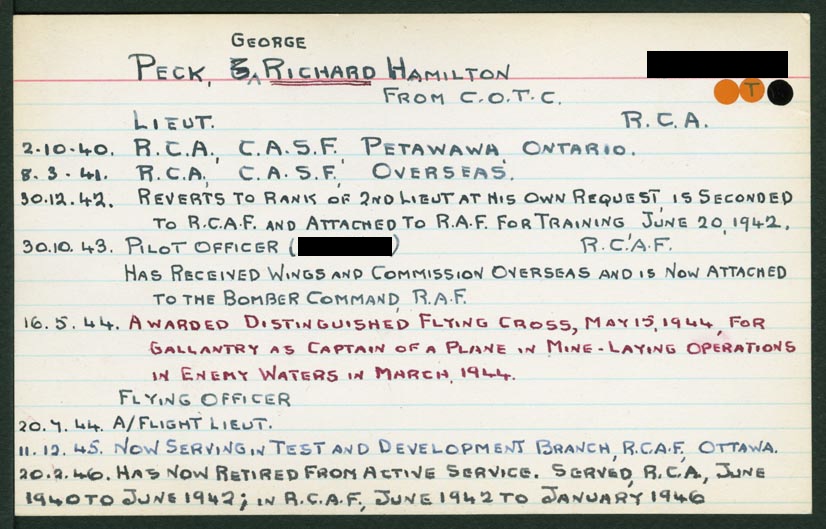 GEORGE
PECK, G. ^ RICHARD HAMILTON
FROM C.O.T.C.
T
LIEUT. R.C.A.
2.10.40. R.C.A., C.A.S.F. PETAWAWA, ONTARIO.
8.3.41. R.C.A., C.A.S.F. OVERSEAS.
30.12.42. REVERTS TO RANK OF 2ND LIEUT AT HIS OWN REQUEST, IS SECONDED
TO R.C.A.F. AND ATTACHED TO R.A.F. FOR TRAINING, JUNE 20, 1942.
30.10.43. PILOT OFFICER ( ) R.C.A.F.
HAS RECEIVED WINGS AND COMMISSION OVERSEAS AND IS NOW ATTACHED
TO THE BOMBER COMMAND, R.A.F.
16.5.44. AWARDED DISTINGUISHED FLYING CROSS, MAY 15, 1944, FOR
GALLANTRY AS CAPTAIN OF A PLANE IN MINE-LAYING OPERATIONS
IN ENEMY WATERS IN MARCH, 1944.
FLYING OFFICER
20.7.44. A/FLIGHT LIEUT.
11.12.45. NOW SERVING IN TEST AND DEVELOPMENT BRANCH, R.C.A.F., OTTAWA.
20.2.46. HAS NOW RETIRED FROM ACTIVE SERVICE. SERVED, R.C.A., JUNE
1940 TO JUNE 1942; IN R.C.A.F., JUNE 1942 TO JANUARY 1946